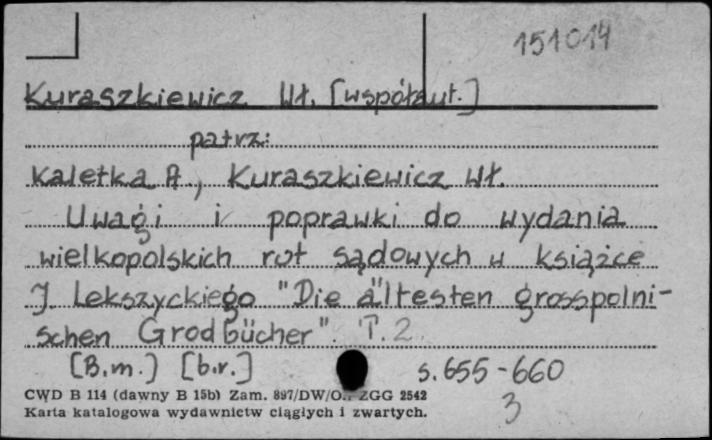 151014
Kuraszkiewicz Wł. [współaut.]
patrz:
Kaletka A., Kuraszkiewicz Wł.
Uwagi i poprawki do wydania
wielkopolskich rot sądowych w książce
J. Lekszyckiego "Die ältesten grosspolni-
schen Grodbücher". T. 2
[B.m.] [b.r.] s. 655-660
CWD B 114 (dawny B 15b) Zam. 897/DW/O. ZGG 2542
Karta katalogowa wydawnictw ciągłych i zwartych.
3